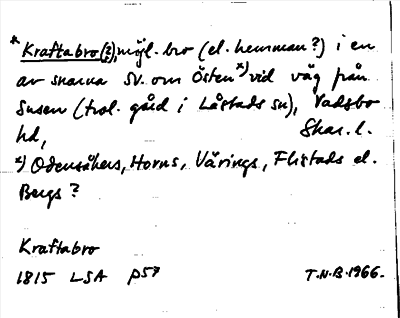 * Kraftabro(?), möjl. bro (el. hemman?) i en
av snarna SV. om Östen x) vid väg från
Susen (trol. gård i Låstads sn), Vadsbo
hd, Skar. l.
x) Odensåkers, Horns, Värings, Flistads el.
Bergs?
Kraftabro
1815 LSA p57
T.N.B. 1966.